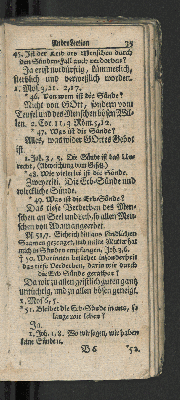 Ander Lection 25
45. Ist der Leib des Menschen durch
den Sünden-Fall auch verdorben?
Ja er ist nothdürftig, kümmerlich,
sterblich und verweßlich worden.
1. Mos. 3, 21. 2, 17.
*46. Von wem ist die Sünde?
Nicht von GOtt, sondern vom
Teufel und des Menschen bösen Wil-
len. 2. Cor. 11, 3 Röm. 5, 12.
*47. Was ist die Sünde?
Alles, was wider GOttes Gebot
ist.
1. Joh. 3, 5. Die Sünde ist das Un-
recht, (Abweichung vom Gesetz.)
*48. Wie vielerlei ist die Sünde.
Zweyerlei. Die Erb-Sünde und
würckliche Sünde.
*49. Was ist die Erb-Sünde?
Das tieffe Verderben des Men-
schen an Seel und Leib, so allen Men-
schen von Adam angeerbet.
Ps. 51, 7. Siehe ich bin aus sündlichem
Saamen gezeuget, und meine Mutter hat
mich in Sünden empfangen. Joh. 3, 6.
† 50. Worinnen bestehet insonderheit
das tieffe Verderben, darin wir durch
die Erb-Sünde gerathen?
Da wir zu allen geistlich guten gantz
untüchtig, und zu allen bösen geneigt.
1. Mos 6, 5.
*51. Bleibet die Erb-Sünde in uns, so
lange wir leben?
Ja.
1. Joh. 1, 8. So wir sagen, wir haben
keine Sünde rc.
B 6 *52.